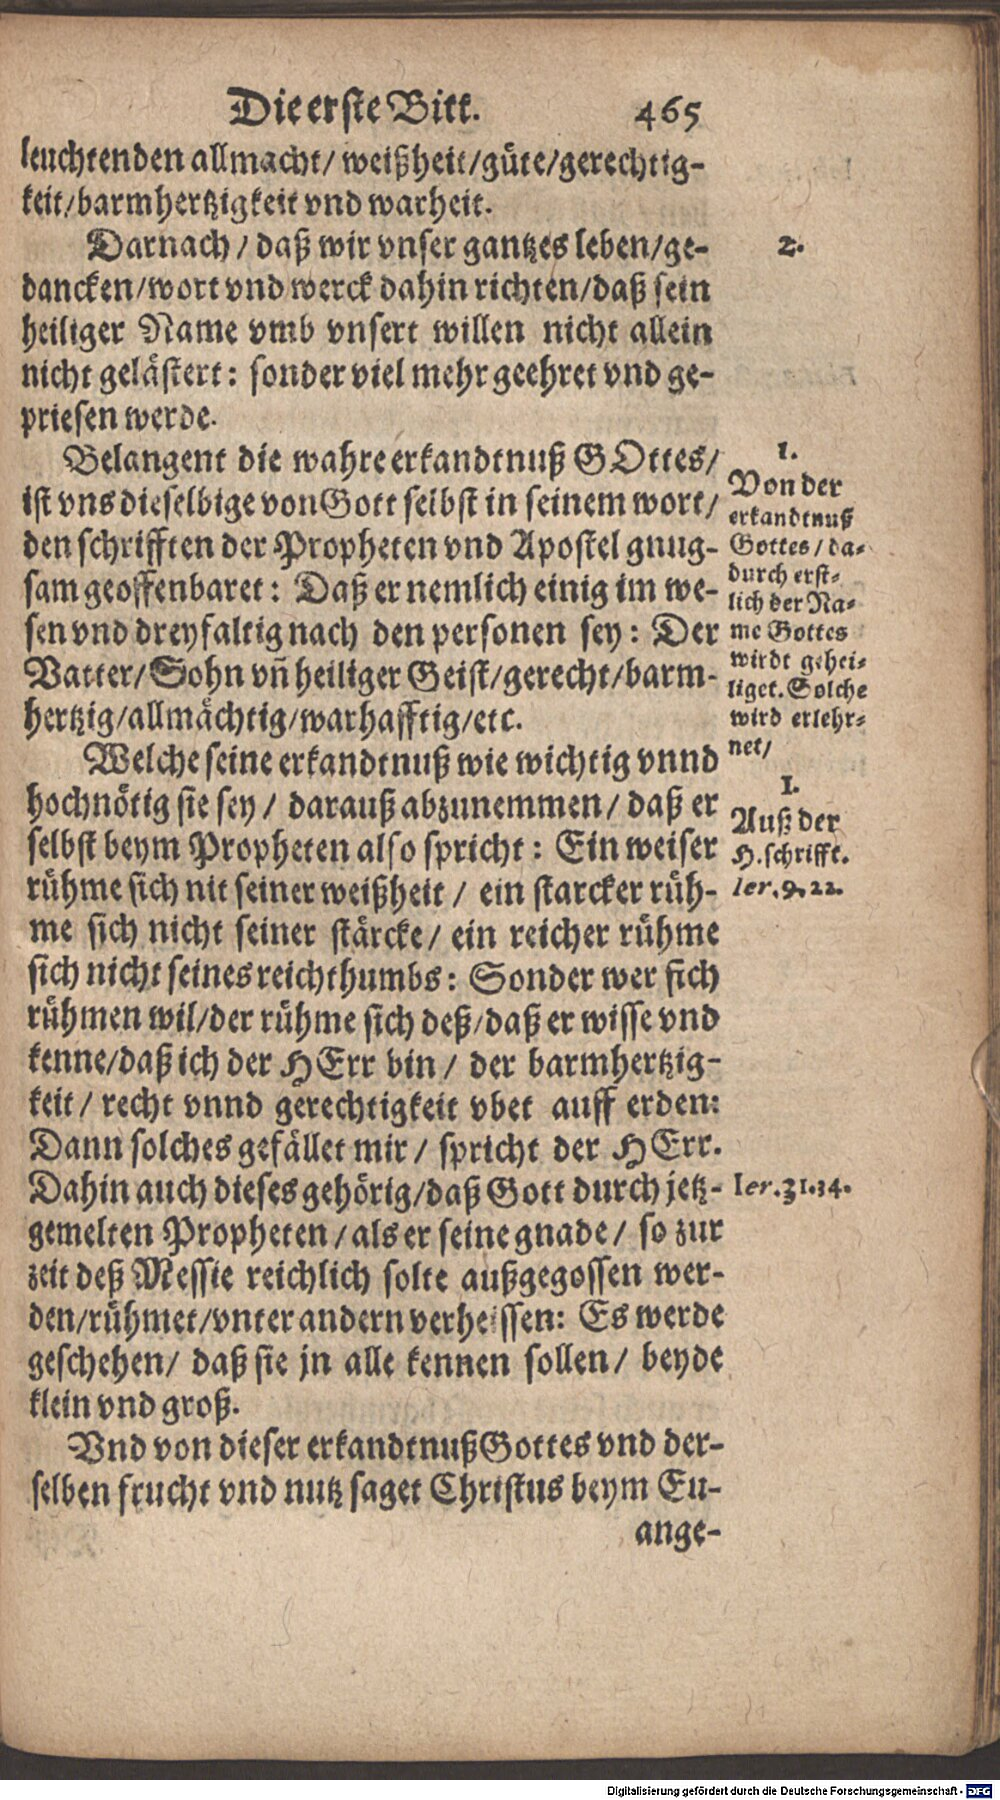 Die erste Bitt. 465
leuchtenden allmacht/ weißheit/güte/gerechtig-
keit/barmhertzigkeit vnd warheit.
Darnach / daß wir vnser gantzes leben/ge-
dancken/wort vnd werck dahin richten/daß sein
heiliger Name vmb vnsert willen nicht allein
nicht gelästert: sonder viel mehr geehret vnd ge-
priesen werde.
2.
Belangent die wahre erkandtnuß GOttes/
ist vns dieselbige von Gott selbst in seinem wort/
den schrifften der Propheten vnd Apostel gnug-
sam geoffenbaret: Daß er nemlich einig im we-
sen vnd dreyfaltig nach den personen sey: Der
Vatter/Sohn vñ heiliger Geist/gerecht/barm-
hertzig/allmächtig/warhafftig/etc.
1.
Von der
erkandtnuß
Gottes/da-
durch erst-
lich der Na-
me Gottes
wirdt gehei-
liget. Solche
wird erlehr-
net/
Welche seine erkandtnuß wie wichtig vnnd
hochnötig sie sey/ darauß abzunemmen/ daß er
selbst beym Propheten also spricht: Ein weiser
rühme sich nit seiner weißheit / ein starcker rüh-
me sich nicht seiner stärcke/ ein reicher rühme
sich nicht seines reichthumbs: Sonder wer sich
rühmen wil/der rühme sich deß/daß er wisse vnd
kenne/daß ich der HErr bin/ der barmhertzig-
keit/ recht vnnd gerechtigkeit vbet auff erden:
Dann solches gefället mir/ spricht der HErr.
Dahin auch dieses gehörig/daß Gott durch jetz-
gemelten Propheten/als er seine gnade/ so zur
zeit deß Messie reichlich solte außgegossen wer-
den/rühmet/vnter andern verheissen: Es werde
geschehen/ daß sie jn alle kennen sollen/ beyde
klein vnd groß.
I.
Auß der
H.schrifft.
Ier.9.22.
Ier.31.34.
Vnd von dieser erkandtnuß Gottes vnd der-
selben frucht vnd nutz saget Christus beym Eu-
ange-
Digitalisierung gefördert durch die Deutsche Forschungsgemeinschaft - DFG